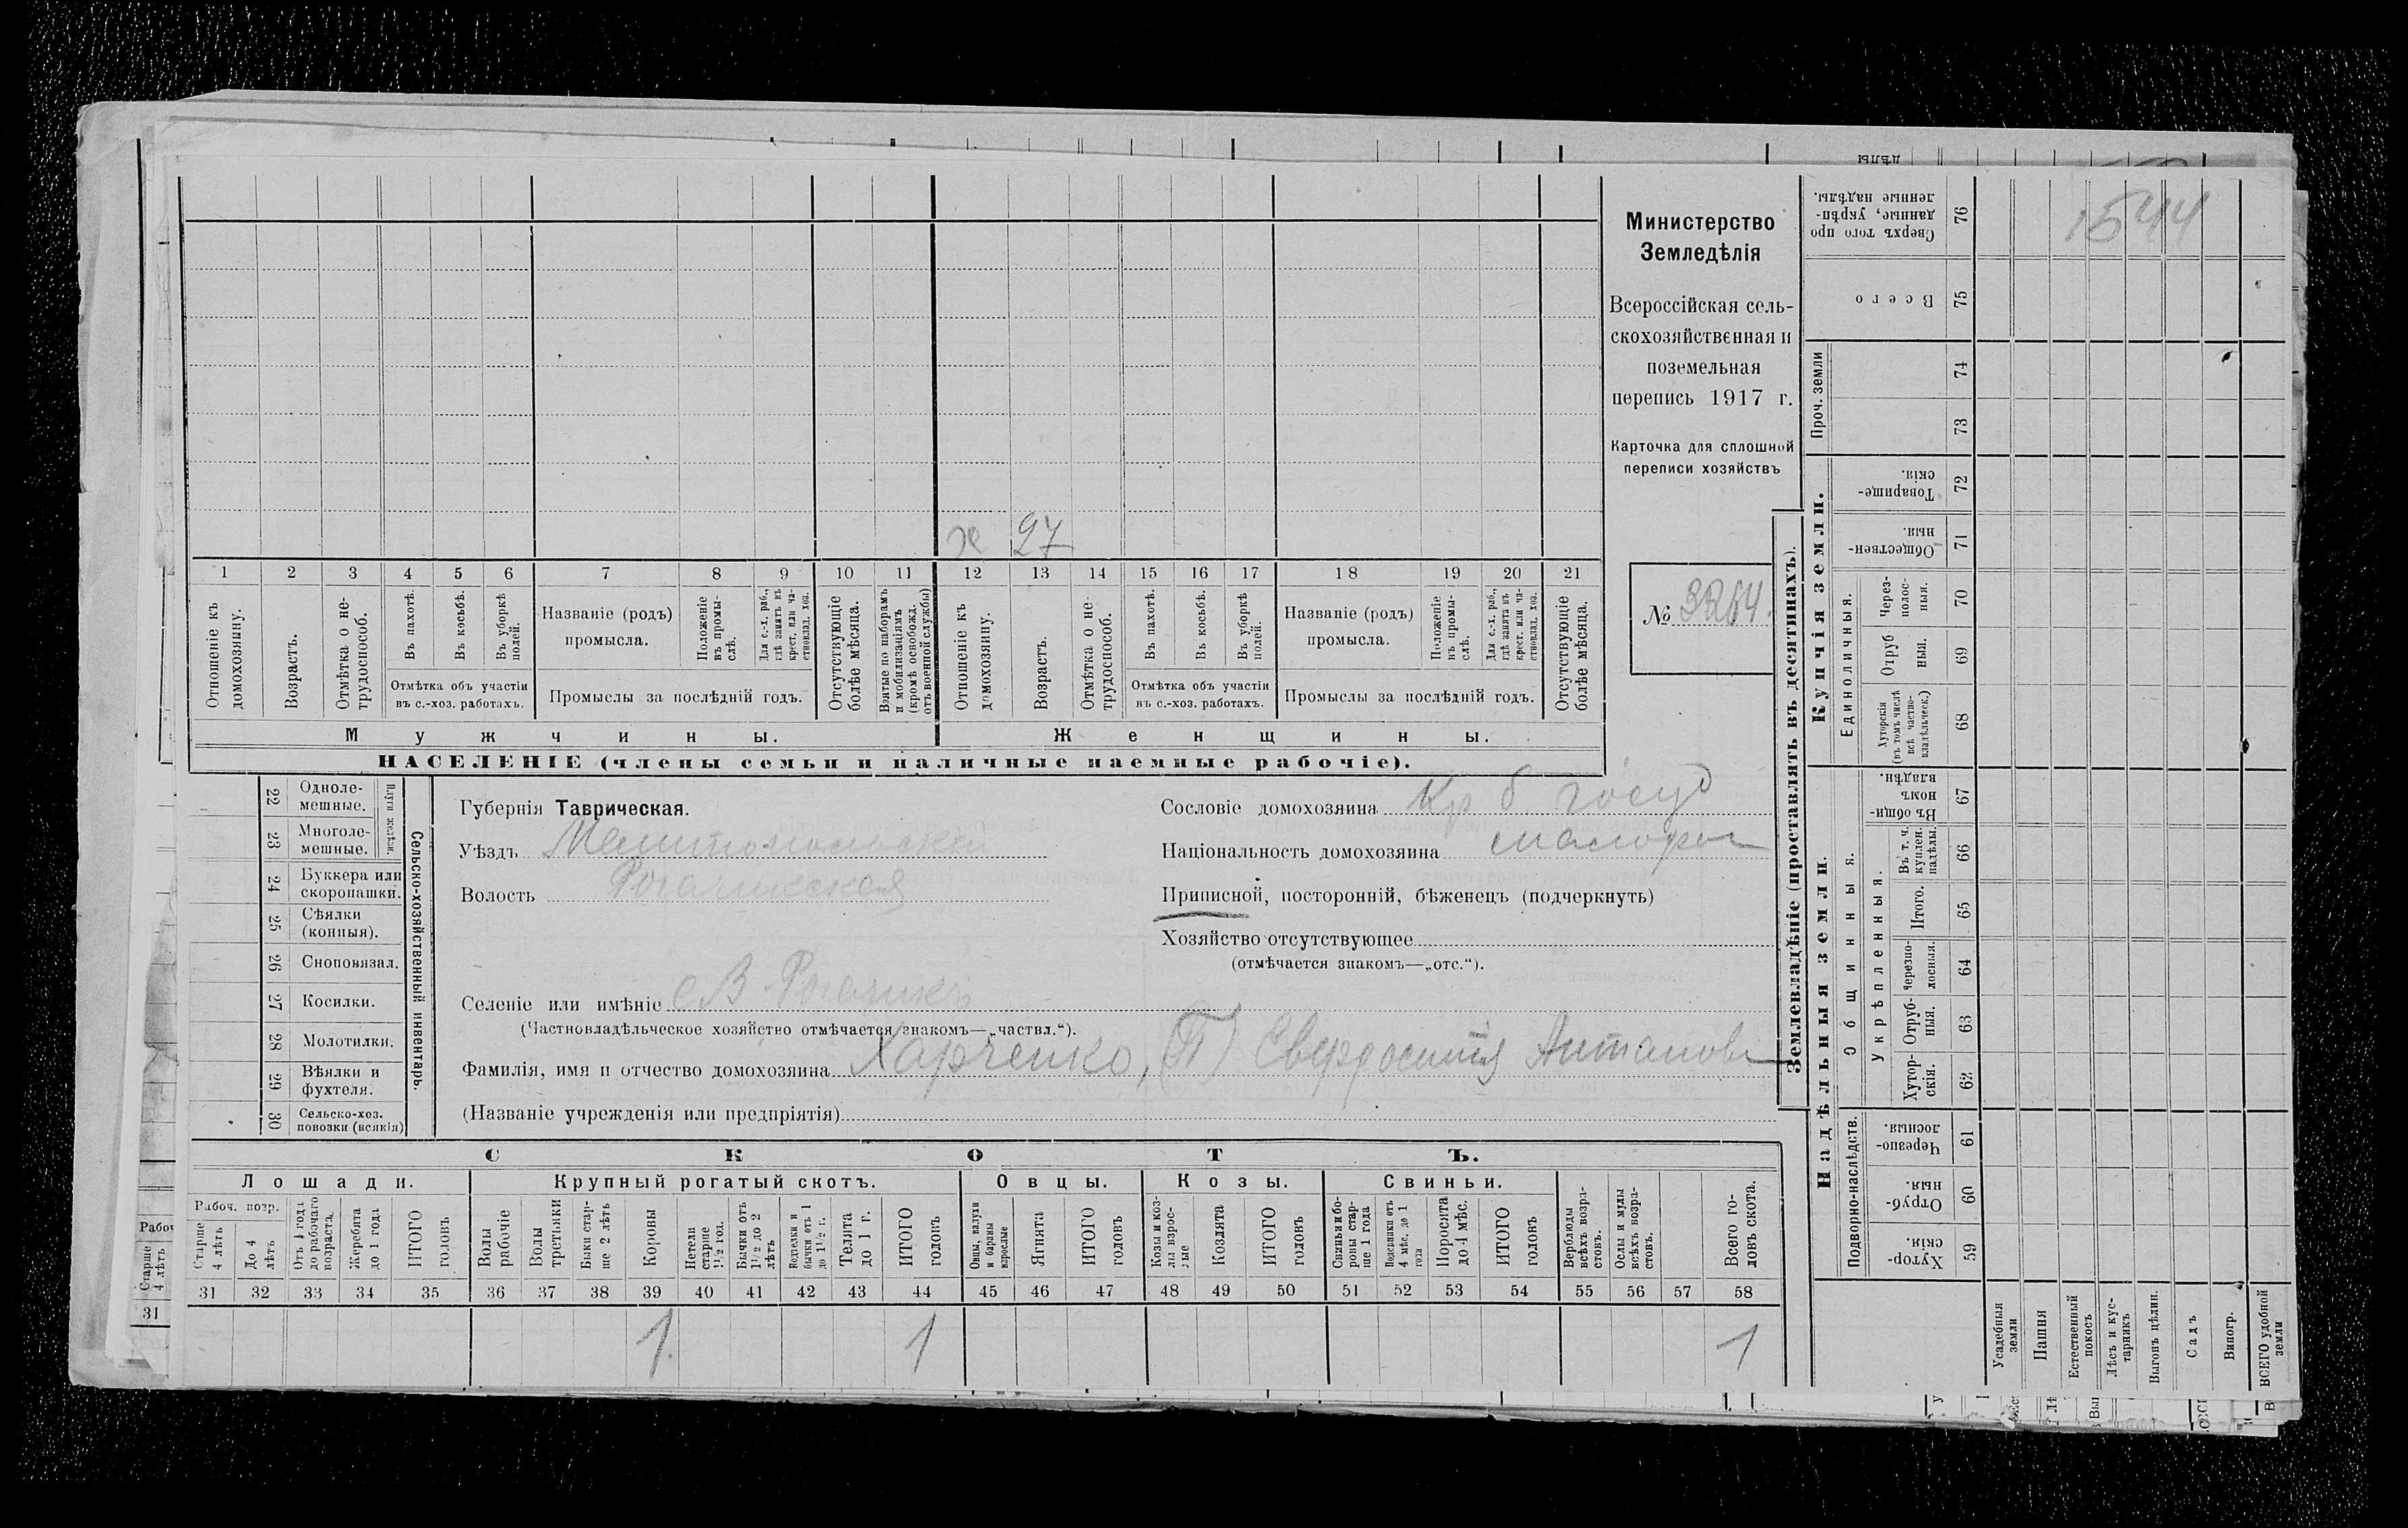 1544
Министерство
Земледѣлія
Всероссійская сель-
скохозяйственная и
поземельная
перепись 1917 г.
Карточка для сплошной
переписи хозяйствъ
№ 3264.
х 27
1 2 3 4 5 6 7 8 9 10 11 12 13 14 15 16 17 18 19 20 21
Отношеніе къ домохозяину.
Возрастъ.
Отмѣтка о не-трудоспособ.
Въ пахотѣ.
Въ косьбѣ.
Въ уборкѣ полей.
Отмѣтка объ участіи
въ с.-хоз. работахъ.
Названіе (родъ)
промысла.
Положеніе въ промы-слѣ.
Для с.-х. раб., гдѣ занятъ въ крест. или ча-стновлад. хоз.
Промыслы за послѣдній годъ.
Отсутствующіе болѣе мѣсяца.
Взятые по наборамъ и мобилизаціямъ (кромѣ освобожд. отъ военной службы)
Отношеніе къ домохозяину.
Возрастъ.
Отмѣтка о не-трудоспособ.
Въ пахотѣ.
Въ косьбѣ.
Въ уборкѣ полей.
Отмѣтка объ участіи
въ с.-хоз. работахъ.
Названіе (родъ)
промысла.
Положеніе въ промы-слѣ.
Для с.-х. раб., гдѣ занята въ крест. или ча-стновлад. хоз.
Промыслы за послѣдній годъ.
Отсутствующіе болѣе мѣсяца.
Мужчины. Женщины.
НАСЕЛЕНІЕ (члены семьи и наличные наемные рабочіе).
Сельско-хозяйственный инвентарь.
Плуги желѣзн.
22 Одноле-мешные.
23 Многоле-мешные.
24 Буккера или скоропашки.
25 Сѣялки (конныя).
26 Сноповязал.
27 Косилки.
28 Молотилки.
29 Вѣялки и фухтеля.
30 Сельско-хоз. повозки (всякія)
Губернія Таврическая.
Уѣздъ Мелитопольскій
Волость Рогачикская
Селеніе или имѣніе с В Рогачикъ
(Частновладѣльческое хозяйство отмѣчается знакомъ—„частвл.“).
Сословіе домохозяина Кр б госуд
Національность домохозяина малорос
Приписной, посторонній, бѣженецъ (подчеркнуть)
Хозяйство отсутствующее
(отмѣчается знакомъ—„отс.“).
Фамилія, имя и отчество домохозяина Харченко, (П)
(Названіе учрежденія или предпріятія)
СКОТЪ.
Лошади. Крупный рогатый скотъ. Овцы. Козы. Свиньи.
Рабоч. возр.
Старше 4 лѣтъ
До 4 лѣтъ
Отъ 1 года до рабочаго возраста.
Жеребята до 1 года
ИТОГО головъ
Волы рабочіе
Волы третьяки
Быки стар-ше 2 лѣтъ
Коровы
Нетели старше 1½ год.
Бычки отъ 1½ до 2 лѣтъ
Подтелки и бычки отъ 1 до 1½ г.
Телята до 1 г.
ИТОГО головъ
Овцы, валухи и бараны взрослые
Ягнята
ИТОГО головъ
Козы и коз-лы взрос-лые
Козлята
ИТОГО головъ
Свиньи и бо-ровы стар-ше 1 года
Подсвинки отъ 4 мѣс. до 1 года
Поросята до 4 мѣс.
ИТОГО головъ
Верблюды всѣхъ возра-стовъ.
Ослы и мулы всѣхъ возра-стовъ.
Всего го-ловъ скота.
31 32 33 34 35 36 37 38 39 40 41 42 43 44 45 46 47 48 49 50 51 52 53 54 55 56 57 58
1 1 1
Землевладѣніе (проставлять въ десятинахъ).
Надѣльныя земли.
Подворно-наслѣдств.
Хутор-скія. 59
Отруб-ныя. 60
Черезпо-лосныя. 61
Общинныя.
Укрѣпленныя.
Хутор-скія. 62
Отруб-ныя. 63
Черезпо-лосныя. 64
Итого. 65
Въ т. ч. куплен. надѣлы. 66
Въ общи-номъ владѣн. 67
Купчія земли.
Единоличныя.
Хуторскія (въ томъ числѣ всѣ частно-владѣльческ.) 68
Отруб ныя. 69
Через-полос-ныя. 70
Обществен-ныя. 71
Товарище-скія. 72
Проч. земли
73
74
Всего 75
Сверхъ того про данные, укрѣп-ленные надѣлы. 76
Усадебныя земли
Пашня
Естественный покосъ
Лѣсъ и кус-тарникъ
Выгонъ цѣлин.
Садъ
Виногр.
ВСЕГО удобной земли